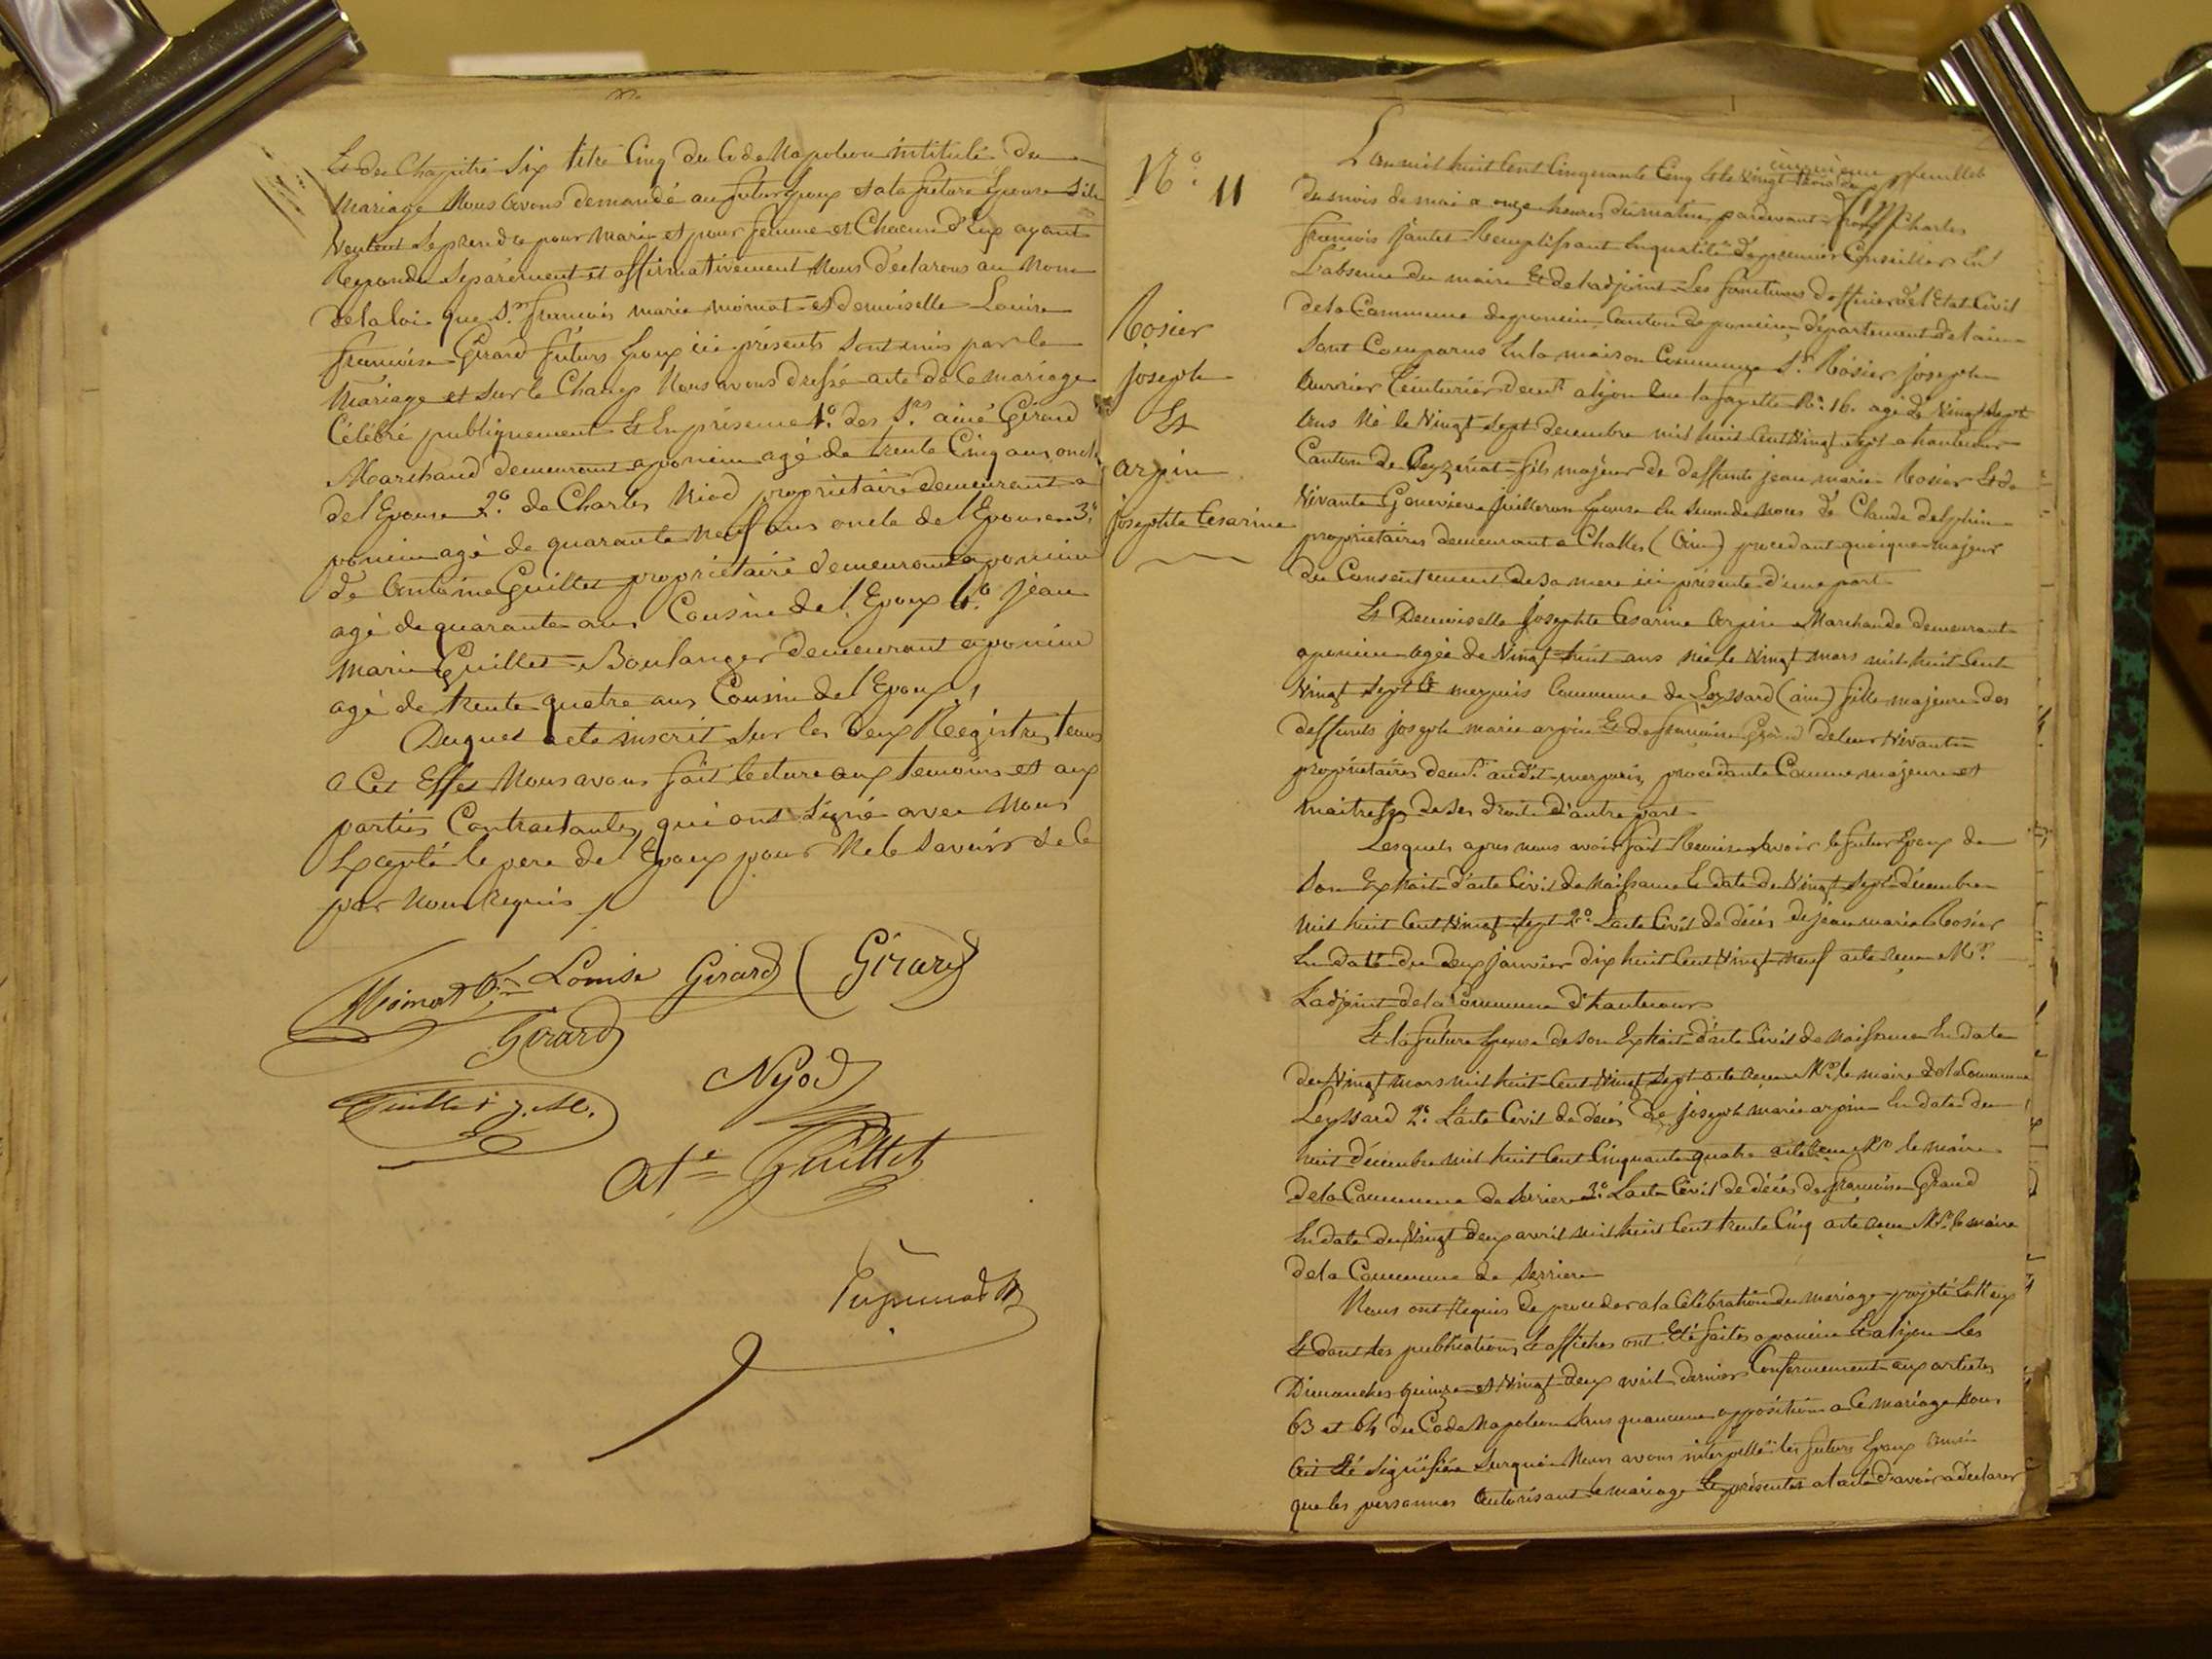 Et du Chapitre Six titre Cinq du Code Napoleon intitulé du
Mariage Nous avons demandé au futur Epoux et a la future Epouse s'ils
Veulent se prendre pour Mari et pour femme et Chacun d'Eux ayant
Repondu Separément et affirmativement Nous déclarons au Nom
de la loi que Sr. francois marie momat et demoiselle Louise
francoise Girard futurs Epoux ici présents sont unis par le
Mariage et sur le Champ Nous avons dressé acte de Ce mariage
Célébré publiquement Et En présence 1o. des Srs. aimé Girard
Marchand demeurant a poncin agé de trente Cinq ans oncle
de l'Epouse 2o. de Charles Niod propriétaire demeurant a
poncin agé de quarante Neuf ans oncle de l'Epouse 3o.
de Antoine Guillet propriétaire demeurant a poncin
agé de quarante ans Cousin de l'Epoux 4o. jean
Marie Guillet Boulanger demeurant a poncin
agé de trente quatre ans Cousin de l'Epoux,
Duquel acte inscrit sur les deux Registres tenus
a Cet Effet Nous avons fait lecture aux temoins et aux
parties Contractantes, qui ont signé avec Nous
Excepté le pere de l'Epoux pour Ne le Savoir de ce
par Nous Requis /
Momat Louise Girard Girard
Girard
Nyod
Guillet J. M.
Ate Guillet
No. 11
Rosier
joseph
Et
arpin
josephte Cesarine
feuillet
L'an mil huit Cent Cinquante Cinq Et le Vingt trois
du mois de mai a onze heures du matin pardevant Nous Charles
francois jantet Remplissant En qualité de premier Conseiller En
L'absence du maire Et de l'adjoint Les fonctions d'officier de l'Etat Civil
de la Commune de poncin Canton de poncin département de l'ain
Sont Comparus En la maison Commune Sr. Rosier joseph
ouvrier teinturier demt. a lyon Rue lafayette No. 16. agé de Vingt Sept
ans Né le Vingt Sept decembre mil huit Cent Vingt Sept a hautecour
Canton de Ceyzériat fils majeur de deffunt jean marie Rosier Et de
Vivante Genevieve Guilleron Epouse En Seconde Noces de Claude delphin
propriétaires demeurant a Challes (Ain) procedant quoique majeur
du Consentement de Sa mere ici présente d'une part
Et Demoiselle josephte Cesarine Arpin Marchande demeurant
a poncin agée de Vingt huit ans Née le Vingt mars mil huit Cent
Vingt Sept a merpuis Commune de Leyssard (ain) fille majeure des
deffunts joseph marie arpin Et de francoise Grand de leur Vivant
propriétaires demt. audit merpuis, procedante Comme majeure et
maitresse de Ses droits d'autre part
Lesquels apres nous avoir fait Remise Savoir le futur Epoux de
Son Extrait d'acte Civil de Naissance En date du Vingt Sept décembre
mil huit Cent Vingt Sept 2o. L'acte Civil de décés de jean marie Rosier
En date du deux janvier dix huit Cent Vingt Neuf acte Recu Mr.
L'adjoint de la Commune d'hautecour
Et la future Epouse de Son Extrait d'acte Civil de Naissance En date
du Vingt mars mil huit Cent Vingt Sept acte Recu Mr. le maire de la Commune
Leyssard 2o. L'acte Civil de décés de joseph marie arpin En date du
huit décembre mil huit Cent Cinquante quatre acte Recu Mr le maire
de la Commune de Serriere 3o. L'acte Civil de décés de francoise Grand
En date du Vingt deux avril mil huit Cent trente Cinq acte Recu Mr. le maire
de la Commune de Serriere
Nous ont Requis de proceder a la Célébration du mariage projeté Entr'eux
Et dont les publications Et affiches ont Eté faites a poncin Et a lyon Les
Dimanches quinze et Vingt deux avril dernier Conformement aux articles
63 et 64 du Code Napoleon Sans qu'aucune opposition a Ce mariage Nous
Ait Eté Signifiée Surquoi Nous avons interpellé les futurs Epoux ainsi
que les personnes Autorisant le mariage Et présentes a l'acte d'avoir a déclarer